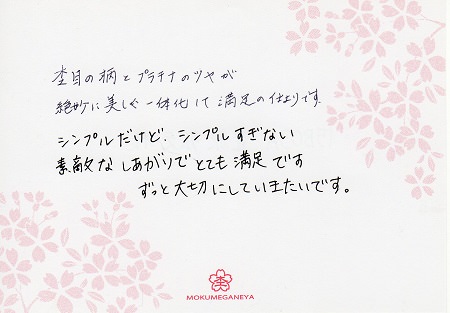 杢目の柄とプラチナのツヤが
絶妙に美しく一体化して満足の仕上りです。
シンプルだけど、シンプルすぎない
素敵なしあがりでとても満足です
ずっと大切にしていきたいです。
杢
MOKUMEGANEYA